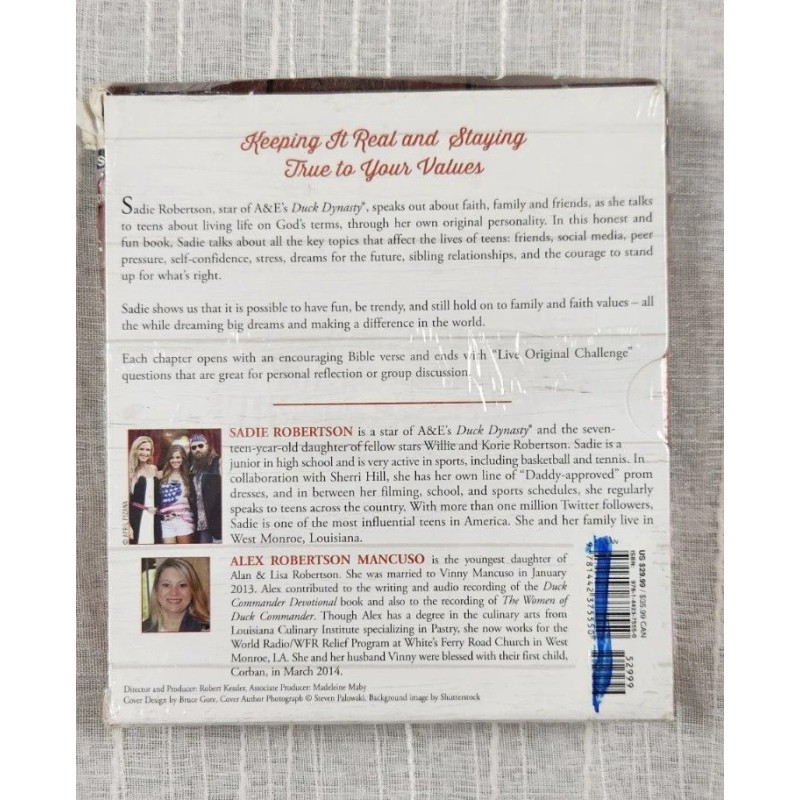 Keeping It Real and Staying
True to Your Values
Sadie Robertson, star of A&E's Duck Dynasty®, speaks out about faith, family and friends, as she talks
to teens about living life on God's terms, through her own original personality. In this honest and
fun book, Sadie talks about all the key topics that affect the lives of teens: friends, social media, peer
pressure, self-confidence, stress, dreams for the future, sibling relationships, and the courage to stand
up for what's right.
Sadie shows us that it is possible to have fun, be trendy, and still hold on to family and faith values – all
the while dreaming big dreams and making a difference in the world.
Each chapter opens with an encouraging Bible verse and ends with "Live Original Challenge"
questions that are great for personal reflection or group discussion.
SADIE ROBERTSON is a star of A&E's Duck Dynasty® and the seven-
teen-year-old daughter of fellow stars Willie and Korie Robertson. Sadie is a
junior in high school and is very active in sports, including basketball and tennis. In
collaboration with Sherri Hill, she has her own line of "Daddy-approved" prom
dresses, and in between her filming, school, and sports schedules, she regularly
speaks to teens across the country. With more than one million Twitter followers,
Sadie is one of the most influential teens in America. She and her family live in
West Monroe, Louisiana.
ALEX ROBERTSON MANCUSO is the youngest daughter of
Alan & Lisa Robertson. She was married to Vinny Mancuso in January
2013. Alex contributed to the writing and audio recording of the Duck
Commander Devotional book and also to the recording of The Women of
Duck Commander. Though Alex has a degree in the culinary arts from
Louisiana Culinary Institute specializing in Pastry, she now works for the
World Radio/WFR Relief Program at White's Ferry Road Church in West
Monroe, LA. She and her husband Vinny were blessed with their first child,
Corban, in March 2014.
Director and Producer: Robert Kessler, Associate Producer: Madeleine Maby
Cover Design by Bruce Gore, Cover Author Photograph © Steven Palowski, Background image by Shutterstock
US $29.99 / $35.99 CAN
ISBN
52999